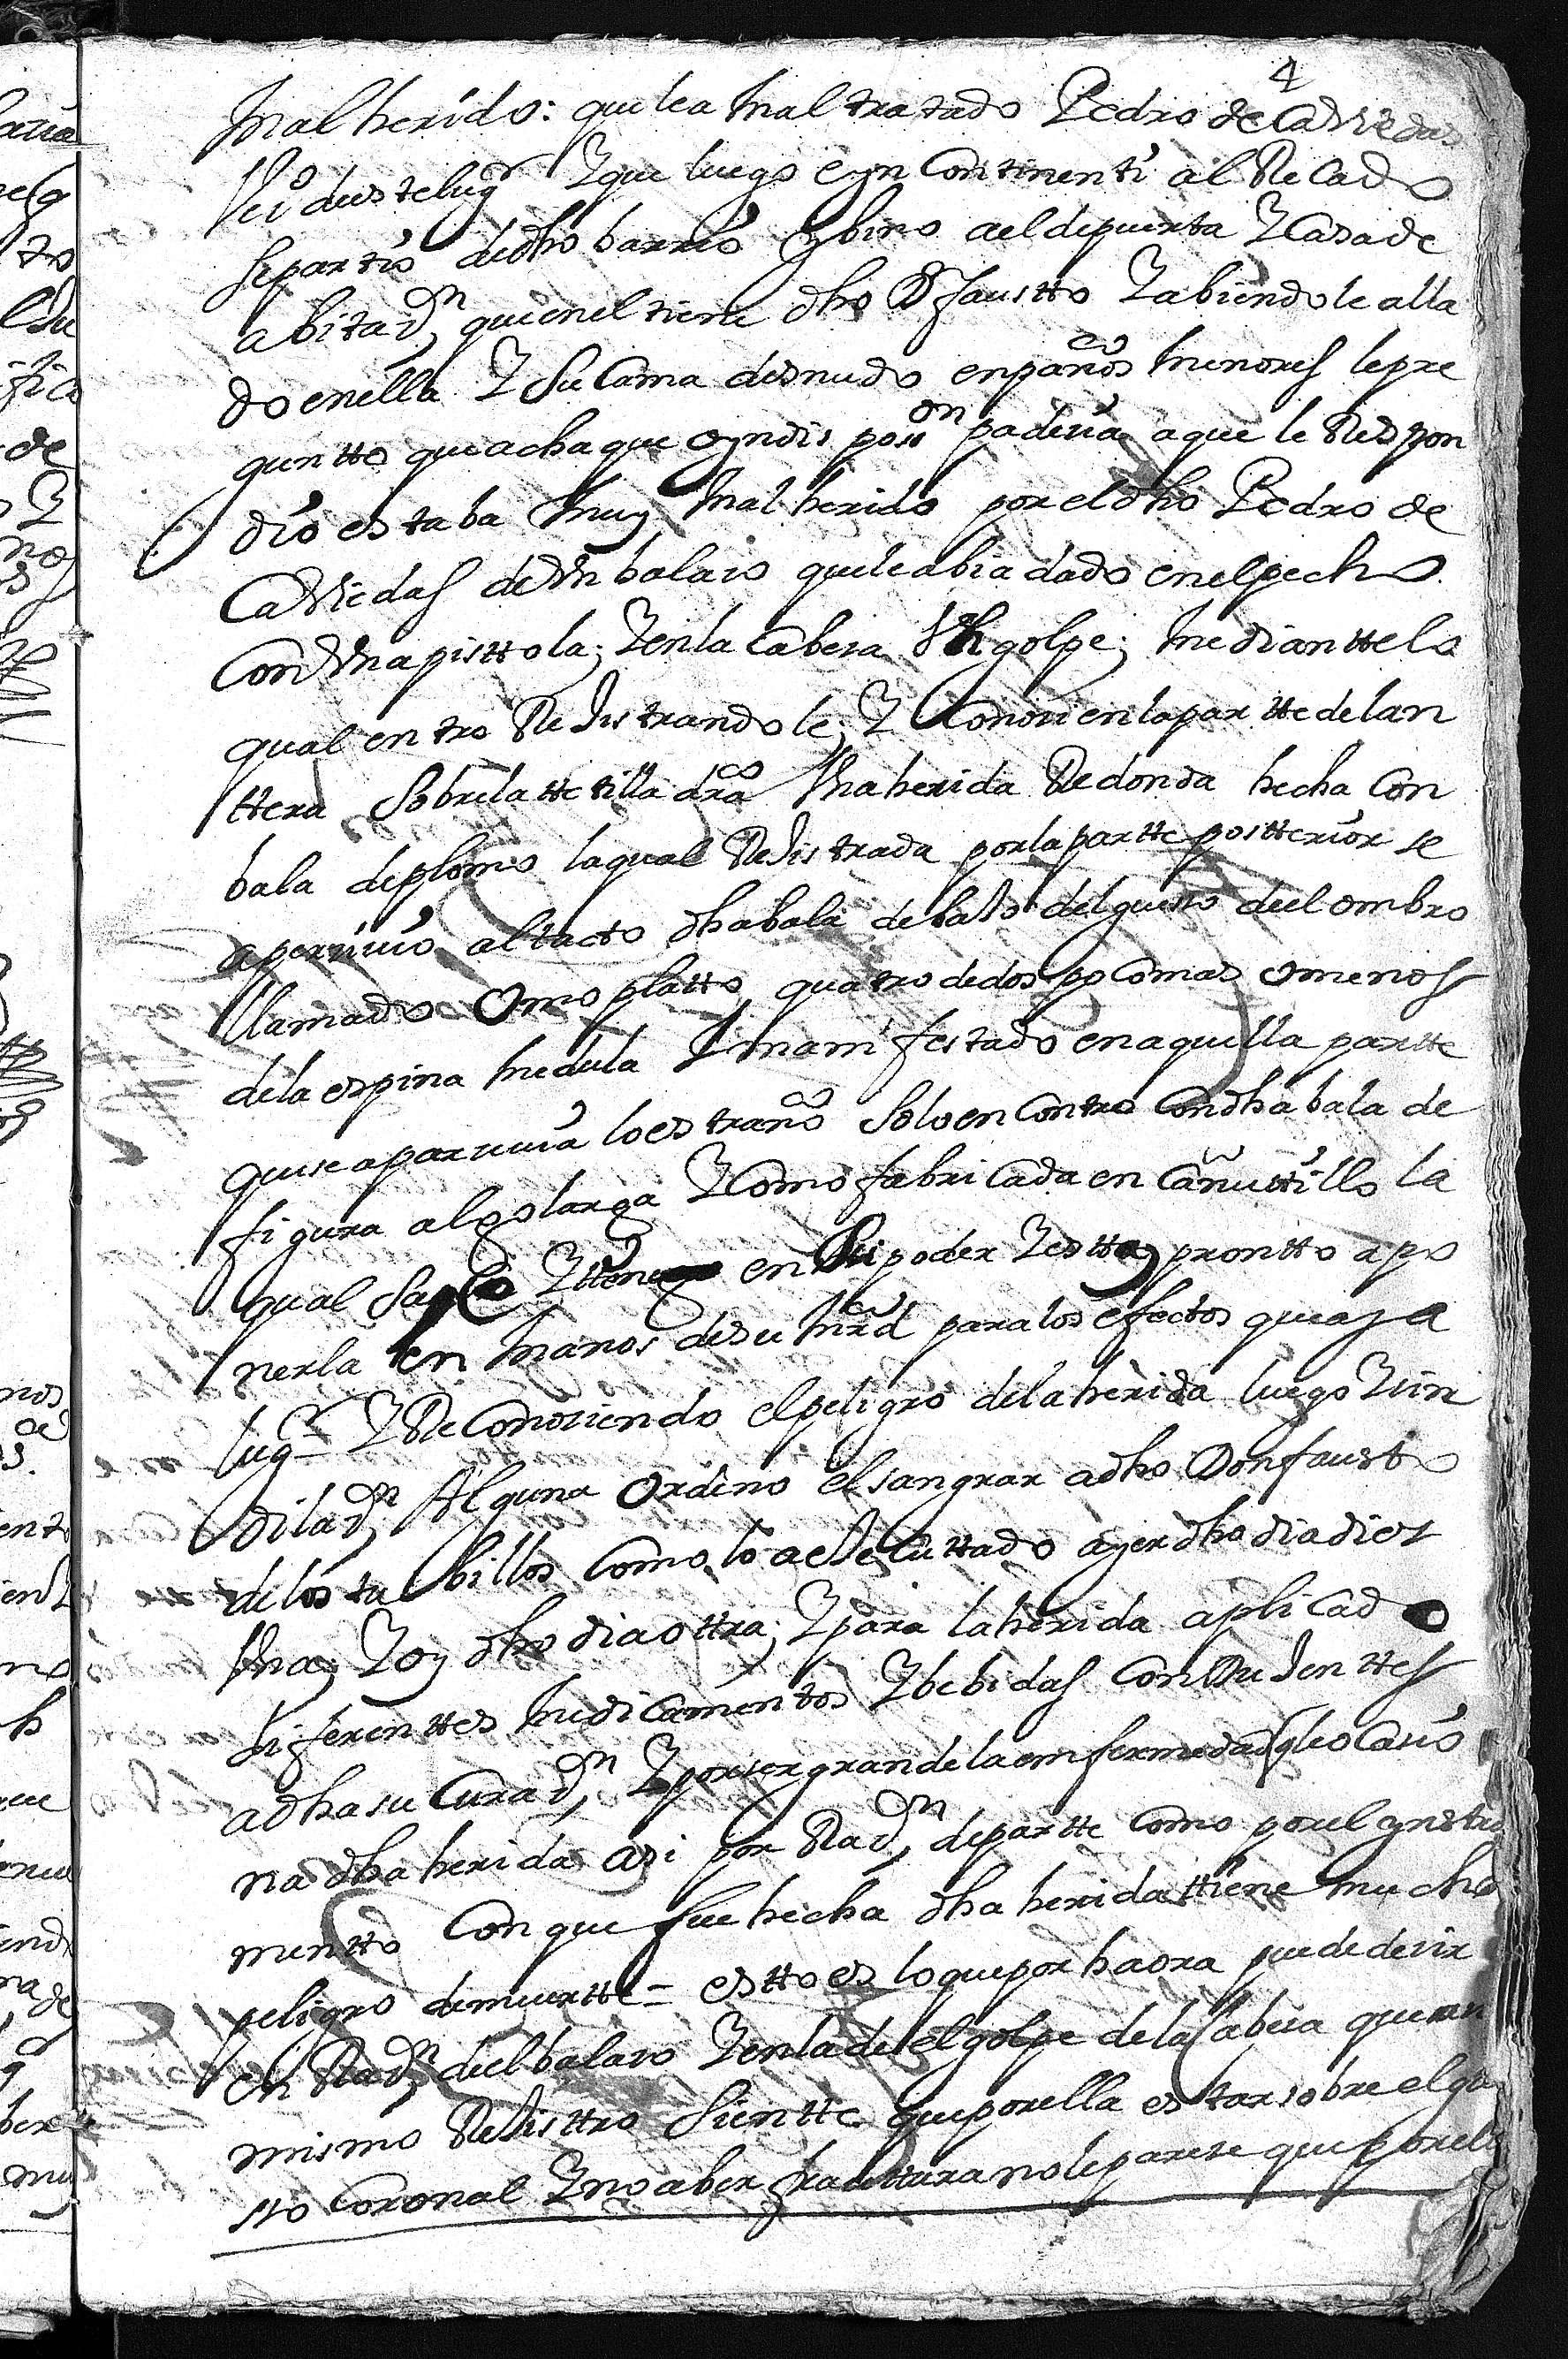 4
mal herido: que lea mal tratado Pedro de Caviedas
veº deeste lugr Y que luego eyn Continenti al Recado
se partio dedho barrio y bino a el de puerta Y Casa de
abitaçn que enel tiene dho Dn faustto Y abiendole alla
do en ella Y su Cama desnudo en paños menores le pre
guntto que achaque o yndisposion padecia a que le Respon
dio estaba muy mal herido por el dho Pedro de
Caviedas de Vn balaço que le abia dado en el pecho
Con Vna pisttola; Y en la Cabeça Vn golpe; mediantte lo
qual entro Rejistrandole; Y Conoci en la partte delan
ttera sobre la ttetilla dra Vna herida Redonda hecha Con
bala de plomo la qual Rejistrada por la partte postterior se
apercivio al tacto dha bala debajo del gueso de el ombro
llamado omoplatto quatro dedos poco mas o menos
de la espina medula Y manifestado en aquella partte
que se aparecia lo estraño solo encontro Con dha bala de
figura algo larga Y Como fabricada en Cañuttillo la
qual saco Y ttiene en su poder Y estta prontto a po
nerla en manos de su mrd para los efectos que aya
lugr Y ReConociendo el peligro de la herida luego Y sin
dilaçn Alguna ordeno el sangrar a dho Don fausto
de los tubillos Como lo a eJecuttado ayer dho dia diez
Vna, Y oy dho dia ottra; Y para la herida aplicado
diferenttes medicamentos Y bebidas ConduJenttes
a dha su Curaçn, Y por ser grande la enfermedad q le ocasio
na dha herida asi por Raçn de partte Como por el ynstru
mentto Con que fue hecha dha herida ttiene mucho
peligro de muertte = estto es lo que por haora puede decir
en Raçn de el balaço Y en la de el golpe de la Cabeça que an
mismo Rejisttro sientte que por ella estar sobre el gue
sso Coronal Y no aber fracttura no le parese que por ella